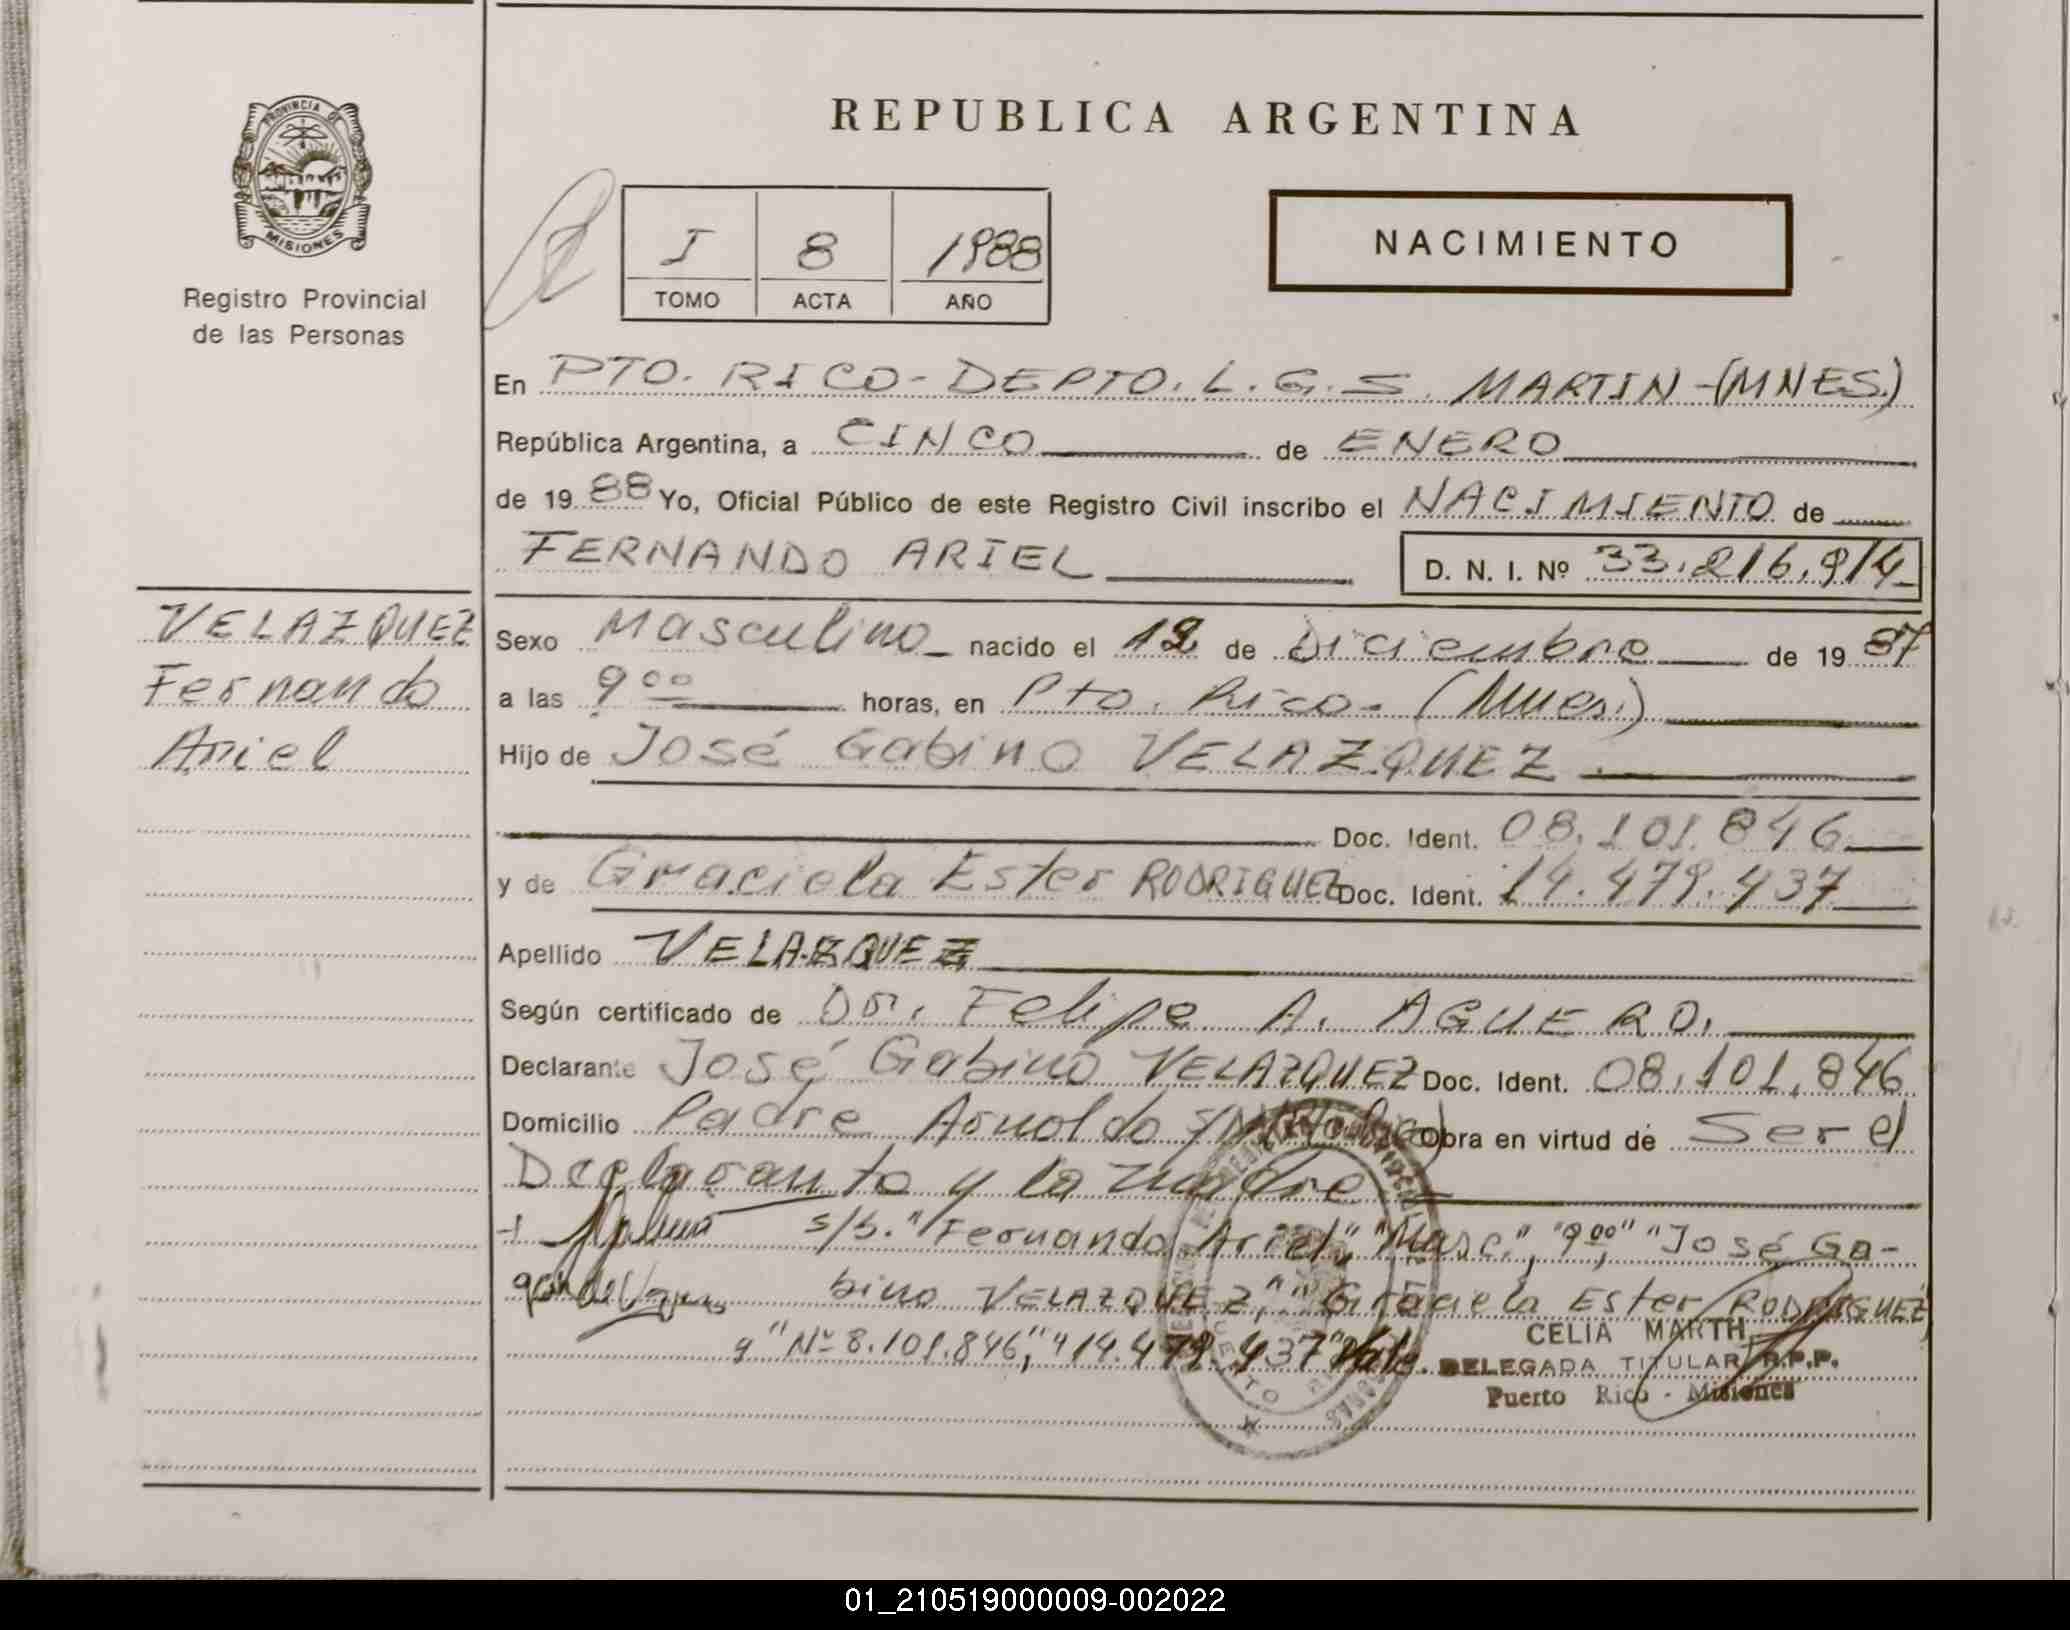 REPUBLICA ARGENTINA
PROVINCIA DE
MISIONES
Registro Provincial
de las Personas
I 8 1988
TOMO ACTA AÑO
NACIMIENTO
En PTO. RICO - DEPTO. L. G. S. MARTIN - (MNES.)
República Argentina, a CINCO de ENERO
de 19 88 Yo, Oficial Público de este Registro Civil inscribo el NACIMIENTO de
FERNANDO ARIEL D. N. I. Nº 33.216.914
VELAZQUEZ
Fernando
Ariel
Sexo Masculino nacido el 12 de Diciembre de 19 87
a las 9 00 horas, en Pto. Rico - (Mnes.)
Hijo de José Gabino VELAZQUEZ
Doc. Ident. 08.101.846
y de Graciela Ester RODRIGUEZ Doc. Ident. 14.479.437
Apellido VELAZQUEZ
Según certificado de Dr. Felipe A. AGUERO.
Declarante José Gabino VELAZQUEZ Doc. Ident. 08.101.846
Domicilio Padre Arnoldo S/N Obra en virtud de Ser el
Declarante y la madre
s/b. "Fernando Ariel", "Masc.", "9 00", "José Ga-
bino VELAZQUEZ", "Graciela Ester RODRIGUEZ
y "Nº 8.101.846", "14.479.437" Vale.
CELIA MARTH
DELEGADA TITULAR R.P.P.
Puerto Rico - Misiones
01_210519000009-002022